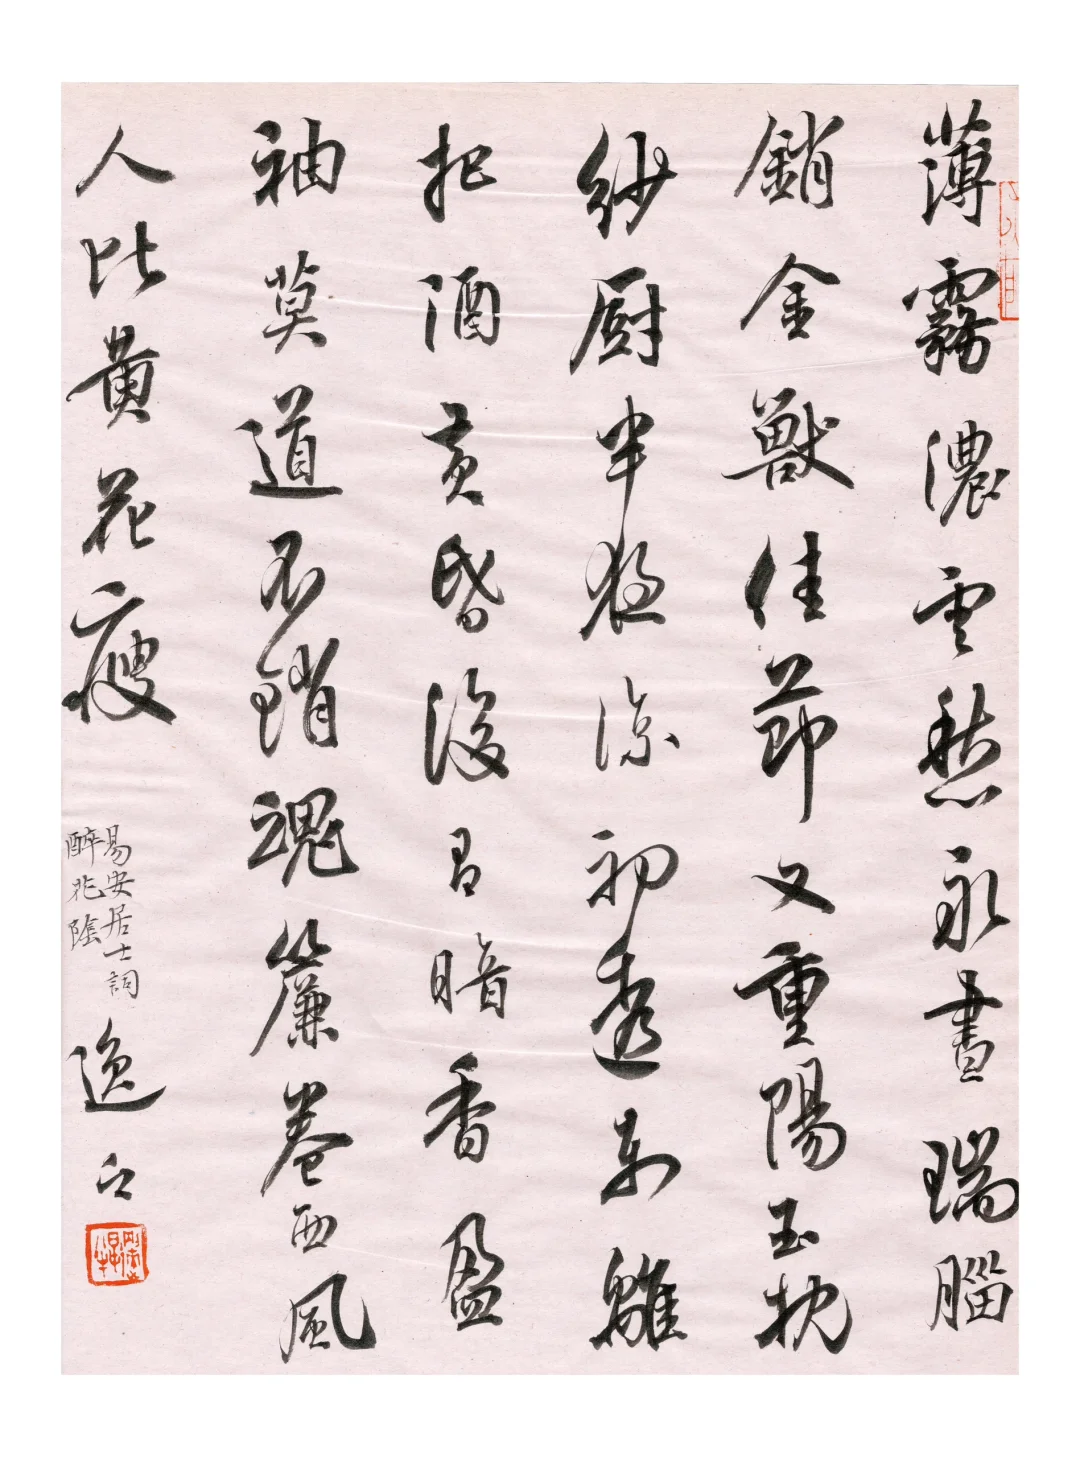 薄霧濃雲愁永晝瑞腦
銷金獸佳節又重陽玉枕
紗厨半夜涼初透東籬
把酒黃昏後有暗香盈
袖莫道不銷魂簾卷西風
人比黃花瘦
易安居士詞
醉花陰
逸